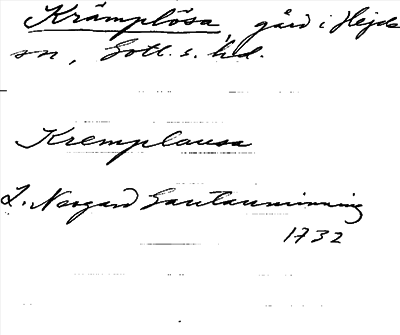 Krämplösa, gård i Hejde
sn, Gotl. s. hd.
Kremplausa
L. Neogard Gautauminning
1732